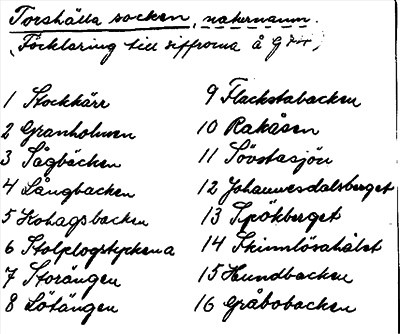 Torshälla socken, naturnamn.
(Förklaring till siffrorna å
1 Stockkärr
2 Granholmen
3 Sågbäcken
4 Långbacken
5 Kohagsbacken
6 Stolplogstyckena
7 Storängen
8 Lötängen
9 Flackstabacken
10 Rakåsen
11 Sövstasjön
12 Johannesdalsberget
13 Spökberget
14 Skinnlösahålet
15 Hundbacken
16 Gråbobacken